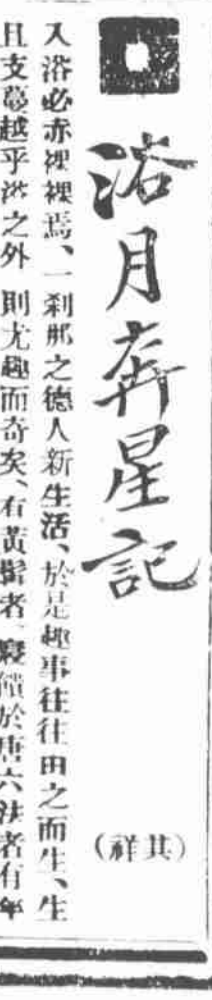 浴月奔星記
(祥其)
入浴必赤裸裸焉、一剎那之德人新生活、於是趣事往往由之而生、生
且支蔓越乎之外 則尤趣而奇矣、有黃髯者、寢饋於唐六法者有年